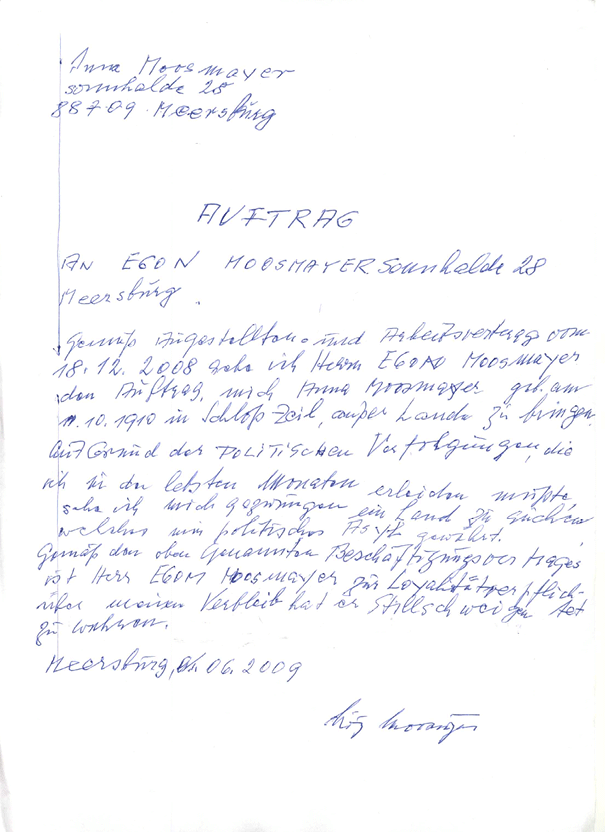 Anna Moosmayer
sonnhalde 28
88709 Meersburg
AUFTRAG
AN EGON MOOSMAYER Sonnhalde 28
Meersburg.
Gemäß Angestellten- und Arbeitsvertrag vom
18.12.2008 gebe ich Herrn EGON Moosmayer
den Auftrag, mich Anna Moosmayer geb. am
11.10.1910 in Schloß Zeil, außer Landes zu bringen.
Auf Grund der POLITISCHEN Verfolgungen, die
ich in den letzten Monaten erleiden mußte
sehe ich mich gezwungen ein Land zu suchen
welches mir politisches Asyl gewährt.
Gemäß dem oben Genannten Beschäftigungsvertrages
ist Herr EGON Moosmayer zur Loyalität verpflich-
tet
über meinen Verbleib hat er Stillschweigen
zu wahren.
Meersburg, 01.06.2009